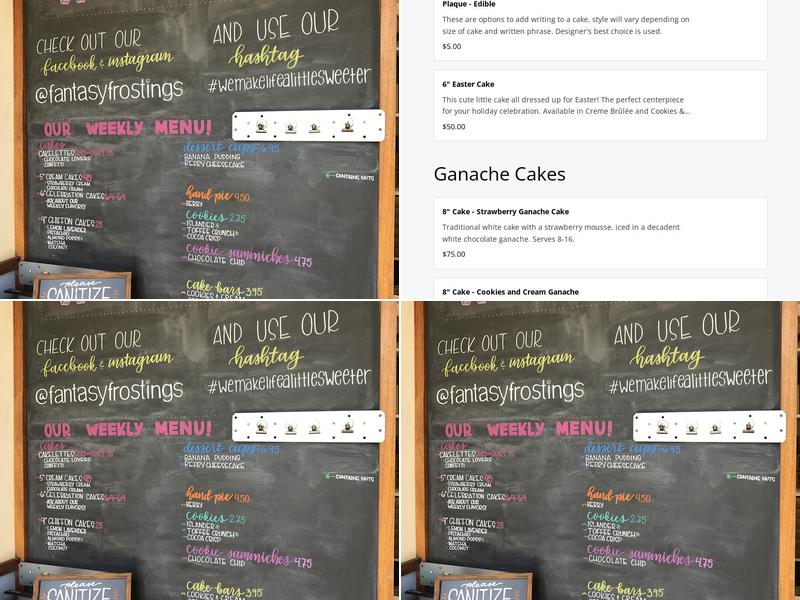 CHECK OUT OUR
facebook & instagram
@fantasyfrostings
AND USE OUR
hashtag
#WEMAKELIFEALITTLESWEETER
OUR WEEKLY MENU!
cakes
CAKELETTES
CHOCOLATE LOVERS
CONFETTI
5" CREAM CAKES
STRAWBERRY CREAM
CHOCOLATE CREAM
6" CELEBRATION CAKES 64-69
ASK ABOUT OUR
WEEKLY FLAVORS!
9" CHIFFON CAKES 25
LEMON LAVENDER
PISTACHIO
ALMOND POPPY
MATCHA
COCONUT
dessert cups 6.95
BANANA PUDDING
BERRY CHEESECAKE
CONTAINS NUTS
hand pie 4.50
BERRY
Cookies 2.75
ISLANDER
TOFFEE CRUNCH
COCOA CRISP
Cookie sammiches 4.75
CHOCOLATE CHIP
Cake bars 3.95
COOKIES & CREAM
please
SANITIZE
Plaque - Edible
These are options to add writing to a cake, style will vary depending on
size of cake and written phrase. Designer's best choice is used.
$5.00
6" Easter Cake
This cute little cake all dressed up for Easter! The perfect centerpiece
for your holiday celebration. Available in Creme Brûlée and Cookies &...
$50.00
Ganache Cakes
8" Cake - Strawberry Ganache Cake
Traditional white cake with a strawberry mousse, iced in a decadent
white chocolate ganache. Serves 8-16.
$75.00
8" Cake - Cookies and Cream Ganache
CHECK OUT OUR
facebook & instagram
@fantasyfrostings
AND USE OUR
hashtag
#WEMAKELIFEALITTLESWEETER
OUR WEEKLY MENU!
cakes
CAKELETTES
CHOCOLATE LOVERS
CONFETTI
5" CREAM CAKES
STRAWBERRY CREAM
CHOCOLATE CREAM
6" CELEBRATION CAKES 64-69
ASK ABOUT OUR
WEEKLY FLAVORS!
9" CHIFFON CAKES 25
LEMON LAVENDER
PISTACHIO
ALMOND POPPY
MATCHA
COCONUT
dessert cups 6.95
BANANA PUDDING
BERRY CHEESECAKE
CONTAINS NUTS
hand pie 4.50
BERRY
Cookies 2.75
ISLANDER
TOFFEE CRUNCH
COCOA CRISP
Cookie sammiches 4.75
CHOCOLATE CHIP
Cake bars 3.95
COOKIES & CREAM
please
SANITIZE
CHECK OUT OUR
facebook & instagram
@fantasyfrostings
AND USE OUR
hashtag
#WEMAKELIFEALITTLESWEETER
OUR WEEKLY MENU!
cakes
CAKELETTES
CHOCOLATE LOVERS
CONFETTI
5" CREAM CAKES
STRAWBERRY CREAM
CHOCOLATE CREAM
6" CELEBRATION CAKES 64-69
ASK ABOUT OUR
WEEKLY FLAVORS!
9" CHIFFON CAKES 25
LEMON LAVENDER
PISTACHIO
ALMOND POPPY
MATCHA
COCONUT
dessert cups 6.95
BANANA PUDDING
BERRY CHEESECAKE
CONTAINS NUTS
hand pie 4.50
BERRY
Cookies 2.75
ISLANDER
TOFFEE CRUNCH
COCOA CRISP
Cookie sammiches 4.75
CHOCOLATE CHIP
Cake bars 3.95
COOKIES & CREAM
please
SANITIZE